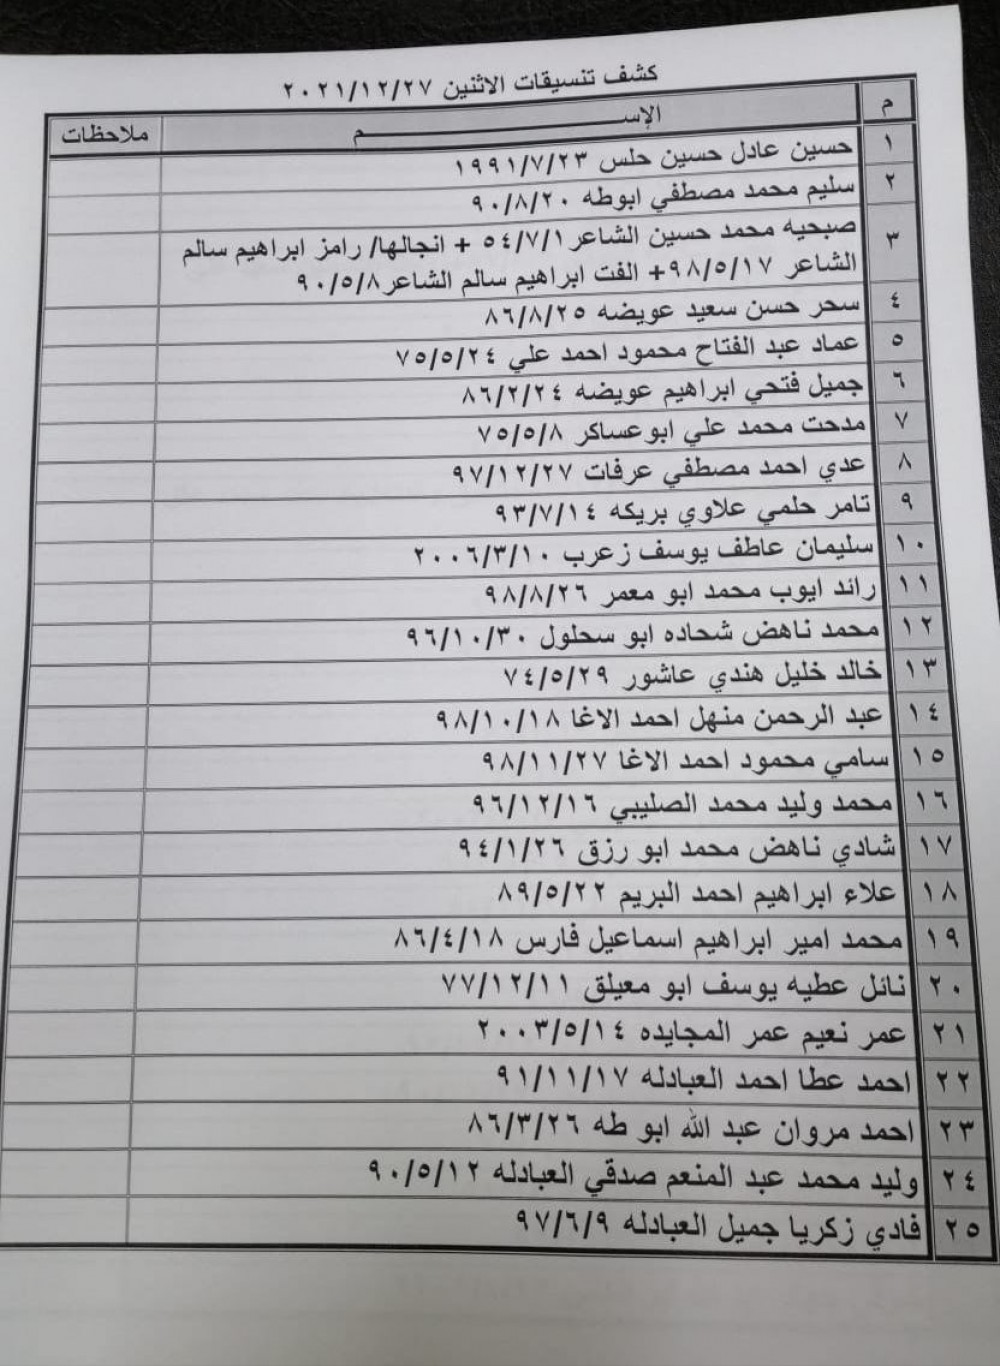 كشف تنسيقات الاثنين ٢٠٢١/١٢/٢٧
م الإســـــــــم ملاحظات
١ حسين عادل حسين حلس ١٩٩١/٧/٢٣
٢ سليم محمد مصطفي ابوطه ٩٠/٨/٢٠
٣ صبحيه محمد حسين الشاعر ٥٤/٧/١ + انجالها/ رامز ابراهيم سالم
الشاعر ٩٨/٥/١٧+ الفت ابراهيم سالم الشاعر ٩٠/٥/٨
٤ سحر حسن سعيد عويضه ٨٦/٨/٢٥
٥ عماد عبد الفتاح محمود احمد علي ٧٥/٥/٢٤
٦ جميل فتحي ابراهيم عويضه ٨٦/٢/٢٤
٧ مدحت محمد علي ابوعساكر ٧٥/٥/٨
٨ عدي احمد مصطفي عرفات ٩٧/١٢/٢٧
٩ تامر حلمي علاوي بريكه ٩٣/٧/١٤
١٠ سليمان عاطف يوسف زعرب ٢٠٠٦/٣/١٠
١١ رائد ايوب محمد ابو معمر ٩٨/٨/٢٦
١٢ محمد ناهض شحاده ابو سحلول ٩٦/١٠/٣٠
١٣ خالد خليل هندي عاشور ٧٤/٥/٢٩
١٤ عبد الرحمن منهل احمد الاغا ٩٨/١٠/١٨
١٥ سامي محمود احمد الاغا ٩٨/١١/٢٧
١٦ محمد وليد محمد الصليبي ٩٦/١٢/١٦
١٧ شادي ناهض محمد ابو رزق ٩٤/١/٢٦
١٨ علاء ابراهيم احمد البريم ٨٩/٥/٢٢
١٩ محمد امير ابراهيم اسماعيل فارس ٨٦/٤/١٨
٢٠ نائل عطيه يوسف ابو معيلق ٧٧/١٢/١١
٢١ عمر نعيم عمر المجايده ٢٠٠٣/٥/١٤
٢٢ احمد عطا احمد العبادله ٩١/١١/١٧
٢٣ احمد مروان عبد الله ابو طه ٨٦/٣/٢٦
٢٤ وليد محمد عبد المنعم صدقي العبادله ٩٠/٥/١٢
٢٥ فادي زكريا جميل العبادله ٩٧/٦/٩